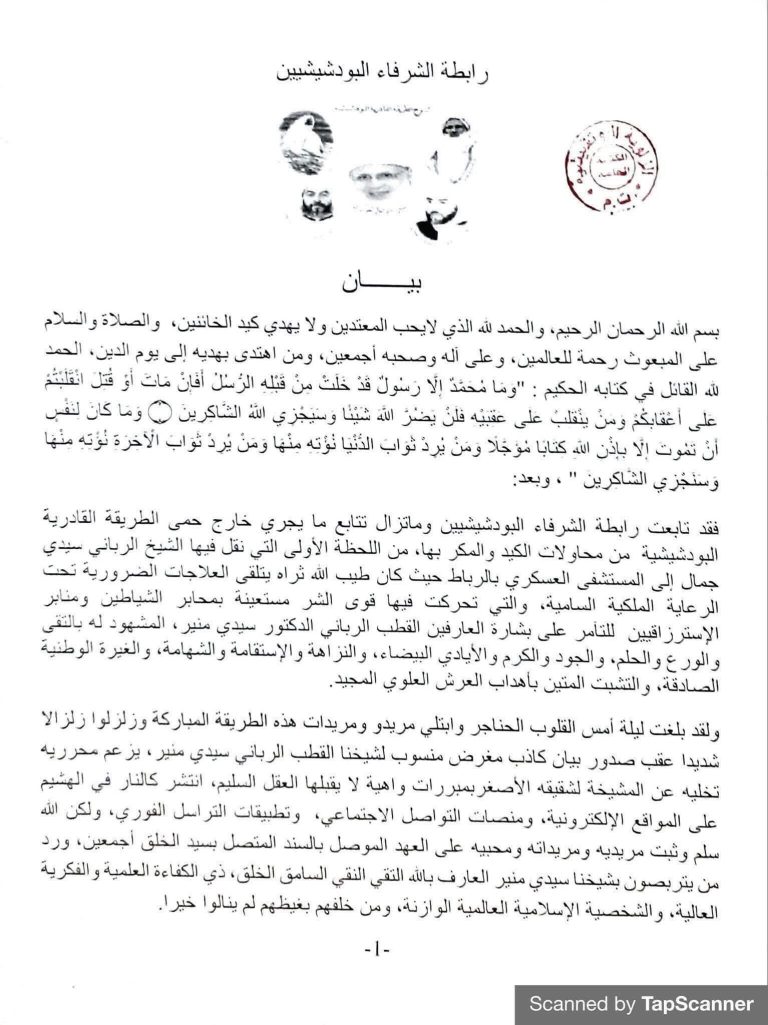 رابطة الشرفاء البودشيشيين
بيـــــان
بسم الله الرحمان الرحيم، والحمد لله الذي لايحب المعتدين ولا يهدي كيد الخائنين، والصلاة والسلام
على المبعوث رحمة للعالمين، وعلى آله وصحبه أجمعين، ومن اهتدى بهديه إلى يوم الدين، الحمد
لله القائل في كتابه الحكيم : "وَمَا مُحَمَّدٌ إِلَّا رَسُولٌ قَدْ خَلَتْ مِنْ قَبْلِهِ الرُّسُلُ أَفَإِنْ مَاتَ أَوْ قُتِلَ انْقَلَبْتُمْ
عَلَى أَعْقَابِكُمْ وَمَنْ يَنْقَلِبْ عَلَى عَقِبَيْهِ فَلَنْ يَضُرَّ اللَّهَ شَيْئًا وَسَيَجْزِي اللَّهُ الشَّاكِرِينَ وَمَا كَانَ لِنَفْسٍ
أَنْ تَمُوتَ إِلَّا بِإِذْنِ اللَّهِ كِتَابًا مُؤَجَّلًا وَمَنْ يُرِدْ ثَوَابَ الدُّنْيَا نُؤْتِهِ مِنْهَا وَمَنْ يُرِدْ ثَوَابَ الْآخِرَةِ نُؤْتِهِ مِنْهَا
وَسَنَجْزِي الشَّاكِرِينَ " ، وبعد:
فقد تابعت رابطة الشرفاء البودشيشيين وماتزال تتابع ما يجري خارج حمى الطريقة القادرية
البودشيشية من محاولات الكيد والمكر بها، من اللحظة الأولى التي نقل فيها الشيخ الرباني سيدي
جمال إلى المستشفى العسكري بالرباط حيث كان طيب الله ثراه يتلقى العلاجات الضرورية تحت
الرعاية الملكية السامية، والتي تحركت فيها قوى الشر مستعينة بمحابر الشياطين ومنابر
الإسترزاقيين للتأمر على بشارة العارفين القطب الرباني الدكتور سيدي منير، المشهود له بالتقى
والورع والحلم، والجود والكرم والأيادي البيضاء، والنزاهة والإستقامة والشهامة، والغيرة الوطنية
الصادقة، والتشبت المتين بأهداب العرش العلوي المجيد.
ولقد بلغت ليلة أمس القلوب الحناجر وابتلي مريدو ومريدات هذه الطريقة المباركة وزلزلوا زلزالا
شديدا عقب صدور بيان كاذب مغرض منسوب لشيخنا القطب الرباني سيدي منير، يزعم محرريه
تخليه عن المشيخة لشقيقه الأصغربمبررات واهية لا يقبلها العقل السليم، انتشر كالنار في الهشيم
على المواقع الإلكترونية، ومنصات التواصل الاجتماعي، وتطبيقات التراسل الفوري، ولكن الله
سلم وثبت مريديه ومريداته ومحبيه على العهد الموصل بالسند المتصل بسيد الخلق أجمعين، ورد
من يتربصون بشيخنا سيدي منير العارف بالله التقي النقي السامق الخلق، ذي الكفاءة العلمية والفكرية
العالية، والشخصية الإسلامية العالمية الوازنة، ومن خلفهم بغيظهم لم ينالوا خيرا.
-1-
Scanned by TapScanner